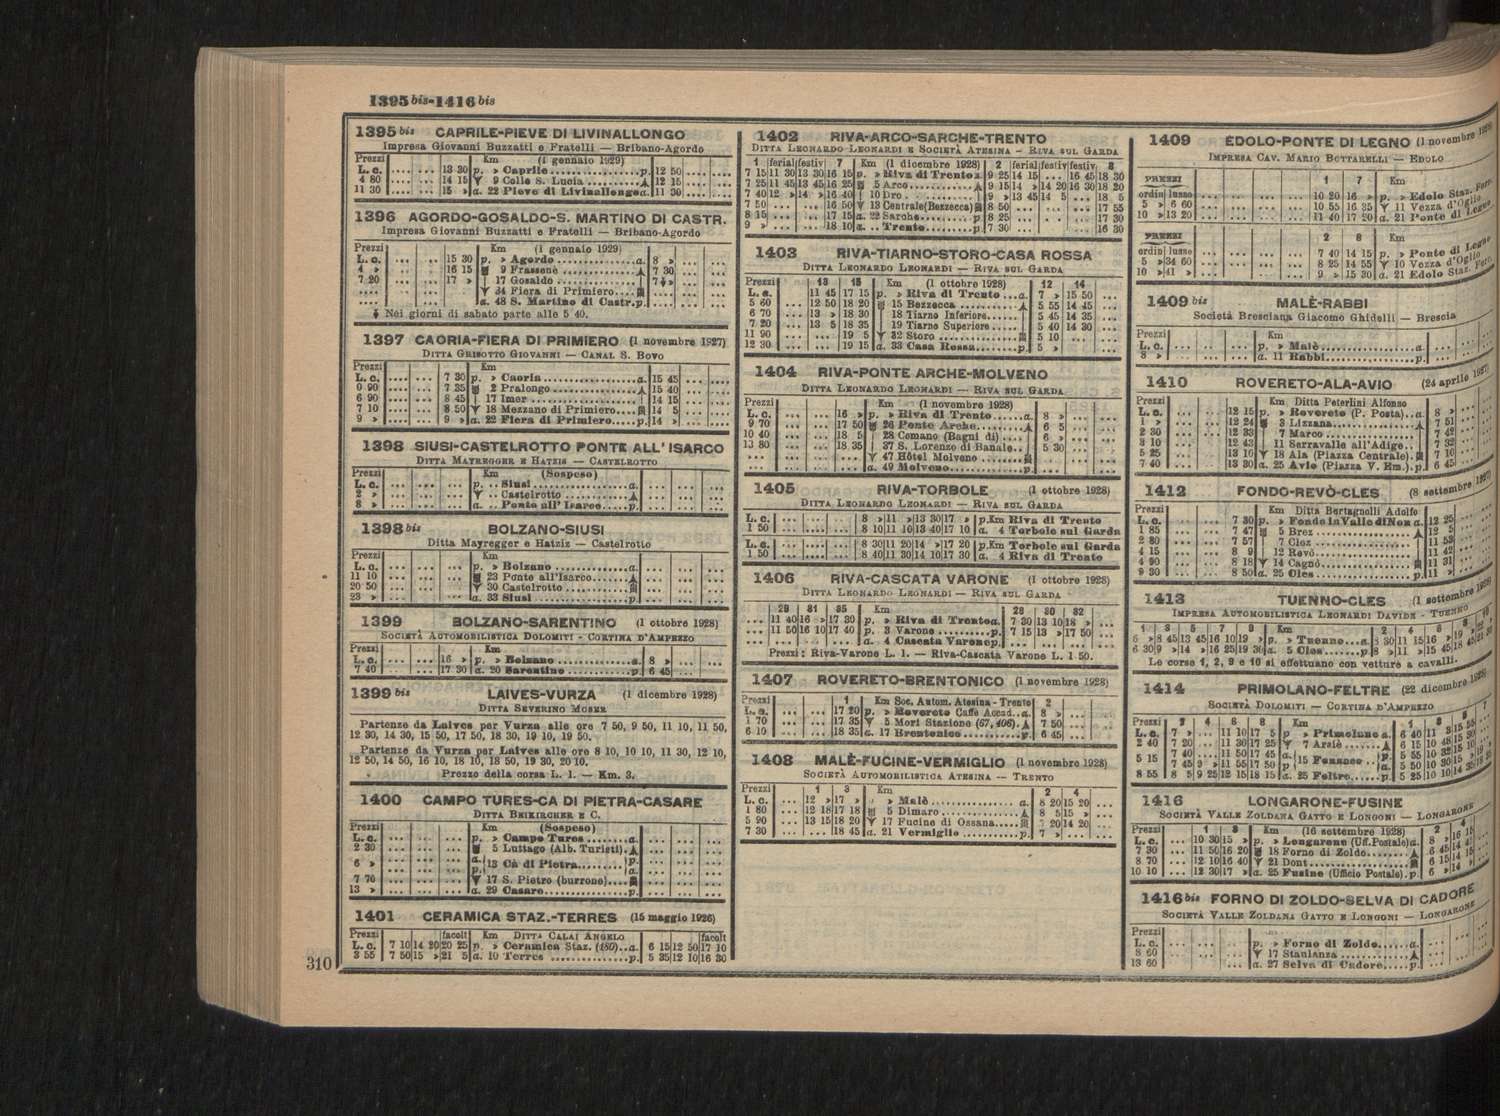 1395 bis-1416 bis
1395 bis CAPRILE-PIEVE DI LIVINALLONGO
Impresa Giovanni Buzzatti e Fratelli — Bribano-Agordo
Prezzi Km (1 gennaio 1929)
L. c. .... ... 13 30 p. » Caprile..................p. 12 50 ... ....
4 80 .... ... 14 15 9 Colle S. Lucia ......... 12 15 ... ....
11 30 .... ... 15 » a. 22 Pieve di Livinallongo a. 11 30 ... ....
1396 AGORDO-GOSALDO-S. MARTINO DI CASTR.
Impresa Giovanni Buzzatti e Fratelli — Bribano-Agordo
Prezzi Km (1 gennaio 1929)
L. c. ... .. 15 30 p. » Agordo................a. 8 » ... ...
4 » ... .. 16 15 9 Frassenè ............. 7 30 ... ...
7 20 ... .. 17 » 17 Gosaldo ............. 7 » ... ...
.... ... .. ... 34 Fiera di Primiero.... ... ... ...
.... ... .. ... a. 48 S. Martino di Castr. p. ... ... ...
Nei giorni di sabato parte alle 5 40.
1397 CAORIA-FIERA DI PRIMIERO (1 novembre 1927)
Ditta Grisotto Giovanni — Canal S. Bovo
Prezzi Km
L. c. .... ... 7 30 p. » Caoria ...............a. 15 45 ... ....
0 90 .... ... 7 35 2 Pralongo ............. 15 40 ... ....
6 90 .... ... 8 45 17 Imer ................. 14 15 ... ....
7 10 .... ... 8 50 18 Mezzano di Primiero.... 14 5 ... ....
9 » .... ... 9 » a. 22 Fiera di Primiero.....p. 14 » ... ....
1398 SIUSI-CASTELROTTO PONTE ALL' ISARCO
Ditta Mayregger e Hatzis — Castelrotto
Prezzi Km (Sospeso)
L. c. ... ... ... p. .. Siusi ................a. ... ... ...
2 » ... ... ... .. Castelrotto ............ ... ... ...
8 » ... ... ... a. .. Ponte all' Isarco.......p. ... ... ...
1398 bis BOLZANO-SIUSI
Ditta Mayregger e Hatziz — Castelrotto
Prezzi Km
L. c. ... ... ... p. » Bolzano ..............a. ... ... ...
11 10 ... ... ... 23 Ponte all'Isarco....... ... ... ...
20 50 ... ... ... 30 Castelrotto ........... ... ... ...
23 » ... ... ... a. 33 Siusi ................p. ... ... ...
1399 BOLZANO-SARENTINO (1 ottobre 1928)
Società Automobilistica Dolomiti - Cortina d'Ampezzo
Prezzi Km
L. c. ... ... 16 » p. » Bolzano ..............a. 8 » ... ...
7 40 ... ... 17 30 a. 20 Sarentino ............p. 6 45 ... ...
1399 bis LAIVES-VURZA (1 dicembre 1928)
Ditta Severino Moser
Partenze da Laives per Vurza alle ore 7 50, 9 50, 11 10, 11 50,
12 30, 14 30, 15 50, 17 50, 18 30, 19 10, 19 50.
Partenze da Vurza per Laives alle ore 8 10, 10 10, 11 30, 12 10,
12 50, 14 50, 16 10, 18 10, 18 50, 19 30, 20 10.
Prezzo della corsa L. 1. — Km. 3.
1400 CAMPO TURES-CA DI PIETRA-CASARE
Ditta Beikircher e C.
Prezzi Km (Sospeso)
L. c. ... ... ... p. » Campo Tures...........a. ... ... ...
2 30 ... ... ... 5 Luttago (Alb. Turisti). ... ... ...
6 » ... ... ... a. p. 13 Cà di Pietra......... p. a. ... ... ...
7 70 ... ... ... 17 S. Pietro (burrone).... ... ... ...
13 » ... ... ... a. 29 Casare................p. ... ... ...
1401 CERAMICA STAZ.-TERRES (15 maggio 1926)
Prezzi facolt Km Ditta Calai Angelo facolt
L. c. 7 10 14 20 20 25 p. » Ceramica Staz. (480)..a. 6 15 12 50 17 10
3 55 7 50 15 » 21 5 a. 10 Terres ...............p. 5 35 12 10 16 30
310
1402 RIVA-ARCO-SARCHE-TRENTO
Ditta Leonardo Leonardi e Società Atesina - Riva sul Garda
1 ferial festiv 7 Km (1 dicembre 1928) 2 ferial festiv festiv 8
7 15 11 30 13 30 16 15 p. » Riva di Trento a. 9 25 14 15 ... 16 45 18 30
7 25 11 45 13 45 16 25 5 Arco............. 9 15 14 » 14 20 16 30 18 20
7 40 12 » 14 » 16 40 10 Dro ............. 9 » 13 45 14 5 ... 18 5
7 50 ... ... 16 50 13 Centrale(Bezzecca) 8 50 ... ... ... 17 55
8 15 ... ... 17 15 a. 22 Sarche...........p. 8 25 ... ... ... 17 30
9 » ... ... 18 10 a. .. Trento...........p. 7 30 ... ... ... 16 30
1403 RIVA-TIARNO-STORO-CASA ROSSA
Ditta Leonardo Leonardi — Riva sul Garda
Prezzi 13 15 Km (1 ottobre 1928) 12 14
L. c. ... 11 45 17 15 p. » Riva di Trento ...a. 7 » 15 50 ...
5 60 ... 12 50 18 20 15 Bezzecca ........... 5 55 14 45 ...
6 70 ... 13 » 18 30 18 Tiarno Inferiore...... 5 45 14 35 ...
7 20 ... 13 5 18 35 19 Tiarno Superiore...... 5 40 14 30 ...
11 90 ... ... 19 5 32 Storo .............. 5 10 ... ...
12 30 ... ... 19 15 a. 33 Casa Rossa..........p. 5 » ... ...
1404 RIVA-PONTE ARCHE-MOLVENO
Ditta Leonardo Leonardi — Riva sul Garda
Prezzi Km (1 novembre 1928)
L. c. ... ... 16 » p. » Riva di Trento......a. 8 » ... ...
9 70 ... ... 17 50 26 Ponte Arche........ 6 5 ... ...
10 40 ... ... 18 5 28 Comano (Bagni di).... 6 » ... ...
13 80 ... ... 18 35 37 S. Lorenzo di Banale.. 5 30 ... ...
... ... ... ... 47 Hôtel Molveno ...... ... ... ...
... ... ... ... a. 49 Molveno............p. ... ... ...
1405 RIVA-TORBOLE (1 ottobre 1928)
Ditta Leonardo Leonardi — Riva sul Garda
L. c. ... ... ... 8 » 11 » 13 30 17 » p. Km Riva di Trento
1 50 ... ... ... 8 10 11 10 13 40 17 10 a. 4 Torbole sul Garda
L. c. ... ... ... 8 30 11 20 14 » 17 20 p. Km Torbole sul Garda
1 50 ... ... ... 8 40 11 30 14 10 17 30 a. 4 Riva di Trento
1406 RIVA-CASCATA VARONE (1 ottobre 1928)
Ditta Leonardo Leonardi — Riva sul Garda
29 31 35 Km 28 30 32
... 11 40 16 » 17 30 p. » Riva di Trento a. 7 30 13 10 18 » ...
... 11 50 16 10 17 40 p. 3 Varone ..........p. 7 15 13 » 17 50 ...
... ... ... ... a. 4 Cascata Varone p. ... ... ... ...
Prezzi: Riva-Varone L. 1. — Riva-Cascata Varone L. 1 50.
1407 ROVERETO-BRENTONICO (1 novembre 1928)
Prezzi 1 Km Soc. Autom. Atesina - Trento 2
L. c. ... ... 17 20 p. » Rovereto Caffè Accad..a. 8 » ... ...
1 70 ... ... 17 35 5 Mori Stazione (67, 406). 7 50 ... ...
6 10 ... ... 18 35 a. 17 Brentonico ..........p. 6 45 ... ...
1408 MALÈ-FUCINE-VERMIGLIO (1 novembre 1928)
Società Automobilistica Atesina — Trento
Prezzi 1 3 Km 2 4
L. c. ... 12 » 17 » » Malè ................a. 8 20 15 20 ...
1 80 ... 12 18 17 18 5 Dimaro .............. 8 5 15 » ...
5 90 ... 13 15 18 20 17 Fucine di Ossana..... 7 20 14 20 ...
7 30 ... ... 18 45 a. 21 Vermiglio ...........p. 7 » ... ...
1409 EDOLO-PONTE DI LEGNO (1 novembre
Impresa Cav. Mario Bottarelli — Edolo
PREZZI 1 7 Km
ordin lusso ... ... ... 10 20 16 » p. » Edolo Staz. Ferr.
5 » 6 60 ... ... ... 10 55 16 35 11 Vezza d'Oglio
10 » 13 20 ... ... ... 11 40 17 20 a. 21 Ponte di Legno
PREZZI 2 8 Km
ordin lusso ... ... ... 7 40 14 15 p. » Ponte di Legno
5 » 34 60 ... ... ... 8 25 14 55 10 Vezza d'Oglio
10 » 41 » ... ... ... 9 » 15 30 a. 21 Edolo Staz. Ferr.
1409 bis MALÈ-RABBI
Società Bresciana Giacomo Ghidelli — Brescia
Prezzi Km
L. c. ... ... ... p. » Malè...................a. ... ... ...
8 » ... ... ... a. 11 Rabbi..................p. ... ... ...
1410 ROVERETO-ALA-AVIO (24 aprile 1927)
Prezzi Km Ditta Peterlini Alfonso
L. c. ... ... 12 15 p. » Rovereto (P. Posta)..a. 8 » ... ...
1 » ... ... 12 24 3 Lizzana............ 7 51 ... ...
2 30 ... ... 12 33 7 Marco.............. 7 42 ... ...
3 10 ... ... 12 43 11 Serravalle all'Adige.. 7 32 ... ...
5 25 ... ... 13 10 18 Ala (Piazza Centrale). 7 10 ... ...
7 40 ... ... 13 30 a. 25 Avio (Piazza V. Em.).p. 6 45 ... ...
1412 FONDO-REVÒ-CLES (8 settembre 1927)
Prezzi Km Ditta Bertagnolli Adolfo
L. c. ... ... 7 30 p. » Fondo in Valle di Non a. 12 25 ...
1 85 ... ... 7 47 5 Brez ............... 12 5 ...
2 80 ... ... 7 57 7 Cloz ............... 11 53 ...
4 15 ... ... 8 9 12 Revò............... 11 42 ...
4 90 ... ... 8 18 14 Cagnò.............. 11 31 ...
9 30 ... ... 8 50 a. 25 Cles...............p. 11 » ...
1413 TUENNO-CLES (1 settembre
Impresa Automobilistica Leonardi Davide - Tuenno
1 3 5 7 9 Km 2 4 6 8
6 » 8 45 13 45 16 10 19 » p. » Tuenno......a. 8 30 11 15 16 »
6 30 9 » 14 » 16 25 19 30 a. 5 Cles........p. 8 » 11 » 15 45
Le corse 1, 2, 9 e 10 si effettuano con vetture a cavalli.
1414 PRIMOLANO-FELTRE (22 dicembre 1928)
Società Dolomiti — Cortina d'Ampezzo
Prezzi 2 4 6 8 Km
L. c. 7 » ... 11 10 17 5 p » Primolano a. 6 40
2 40 7 20 ... 11 30 17 25 7 Arsiè ........ 6 15
5 15 7 40 ... 11 45 17 45 a. 15 Fonzaso .. p. 5 55
7 45 9 » 11 55 17 50 p. a. 5 50
8 55 8 5 9 25 12 15 18 15 a. 25 Feltre......p. 5 25
1416 LONGARONE-FUSINE
Società Valle Zoldana Gatto e Longoni — Longarone
Prezzi 1 3 Km (16 settembre 1928) 2 4
L. c. ... 10 30 15 » p. » Longarone (Uff.Postale)a. 8 » 16 15
7 30 ... 11 50 16 20 18 Forno di Zoldo........ 6 45
8 70 ... 12 10 16 40 21 Dont................ 6 15
10 10 ... 12 30 17 » a. 25 Fusine (Ufficio Postale).p. 6 » 14 »
1416 bis FORNO DI ZOLDO-SELVA DI CADORE
Società Valle Zoldana Gatto e Longoni — Longarone
Prezzi Km
L. c. ... ... ... p. » Forno di Zoldo......a. ... ...
8 60 ... ... ... 17 Staulanza .......... ... ...
13 60 ... ... ... a. 27 Selva di Cadore.....p. ... ...